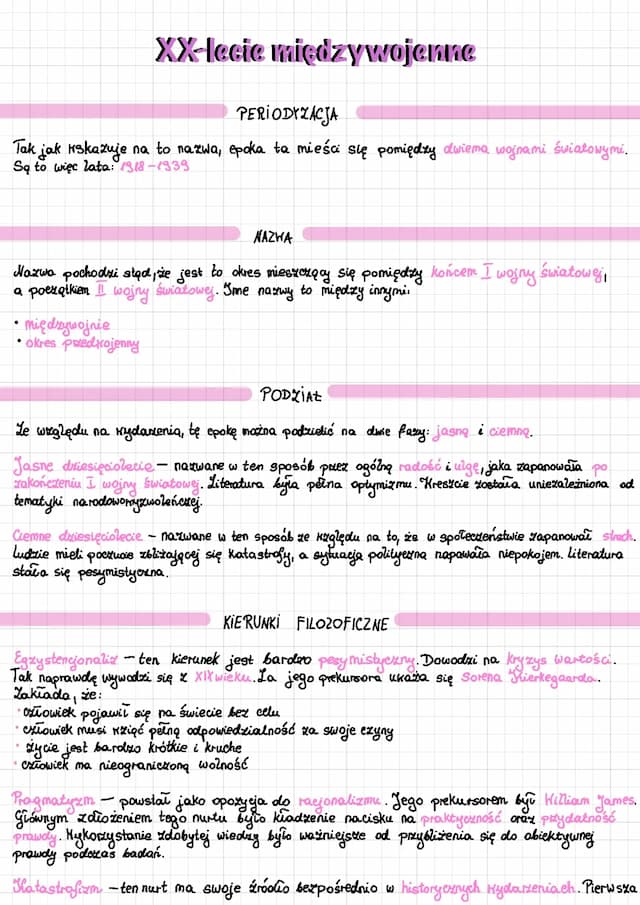 XX-lecie międzywojenne
PERIODYZACJA
Tak jak wskazuje na to nazwa, epoka ta mieści się pomiędzy dwiema wojnami światowymi.
Są to więc lata: 1918-1939
NAZWA
Nazwa pochodzi stąd, że jest to okres mieszczący się pomiędzy końcem I wojny światowej,
a początkiem II wojny światowej. Inne nazwy to między innymi:
• międzywojnie
• okres przedwojenny
PODZIAŁ
Ze względu na wydarzenia, tę epokę można podzielić na dwie fazy: jasną i ciemną.
Jasne dziesięciolecie — nazwane w ten sposób przez ogólną radość i ulgę, jaka zapanowała po
zakończeniu I wojny światowej. Literatura była pełna optymizmu. Wreszcie została uniezależniona od
tematyki narodowowyzwoleńczej.
Ciemne dziesięciolecie — nazwane w ten sposób ze względu na to, że w społeczeństwie zapanował strach.
Ludzie mieli poczucie zbliżającej się katastrofy, a sytuacja polityczna napawała niepokojem. Literatura
stała się pesymistyczna.
KIERUNKI FILOZOFICZNE
Egzystencjonalizm — ten kierunek jest bardzo pesymistyczny. Dowodzi na kryzys wartości.
Tak naprawdę wywodzi się z XIX wieku. Za jego prekursora uważa się Sorena Kierkegaarda.
Zakłada, że:
• człowiek pojawił się na świecie bez celu
• człowiek musi wziąć pełną odpowiedzialność za swoje czyny
• życie jest bardzo krótkie i kruche
• człowiek ma nieograniczoną wolność
Pragmatyzm — powstał jako opozycja do racjonalizmu. Jego prekursorem był William James.
Głównym założeniem tego nurtu było kładzenie nacisku na praktyczność oraz przydatność
prawdy. Wykorzystanie zdobytej wiedzy było ważniejsze od przybliżenia się do obiektywnej
prawdy podczas badań.
Katastrofizm — ten nurt ma swoje źródło bezpośrednio w historycznych wydarzeniach. Pierwsza